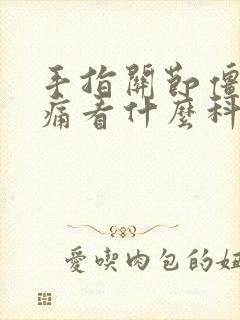 手指關節僵
痛看什麼科
愛喫肉包的妞